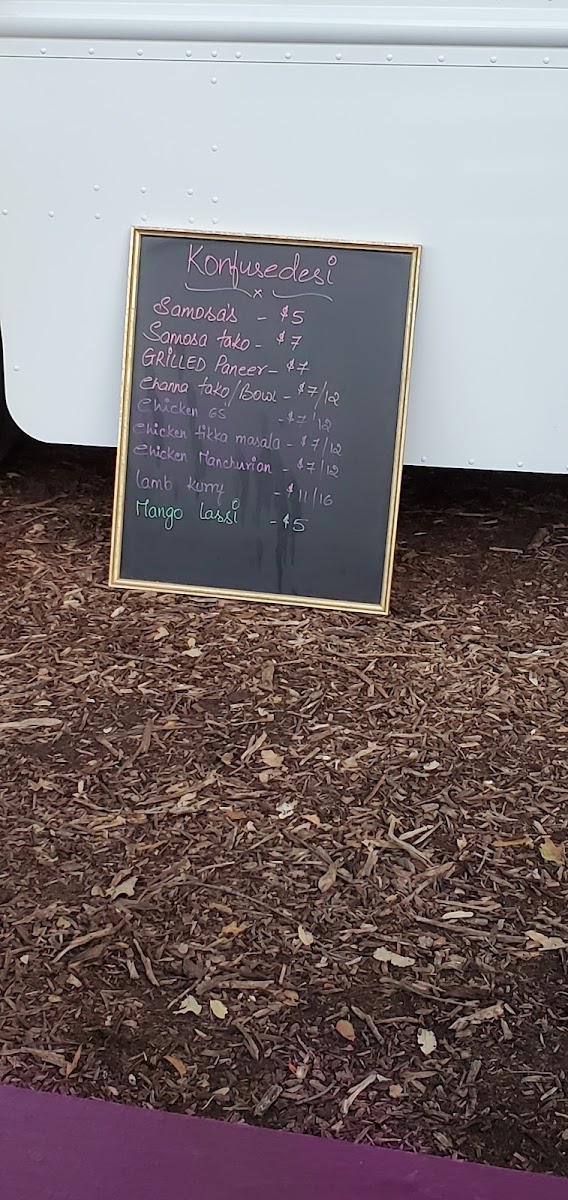 Konfusedesi
x
Samosa's - $5
Samosa tako - $7
GRILLED Paneer - $7
Channa tako/Bowl - $7/12
Chicken 65 - $7/12
Chicken tikka masala - $7/12
Chicken Manchurian - $7/12
lamb kurry - $11/16
Mango lassi - $5